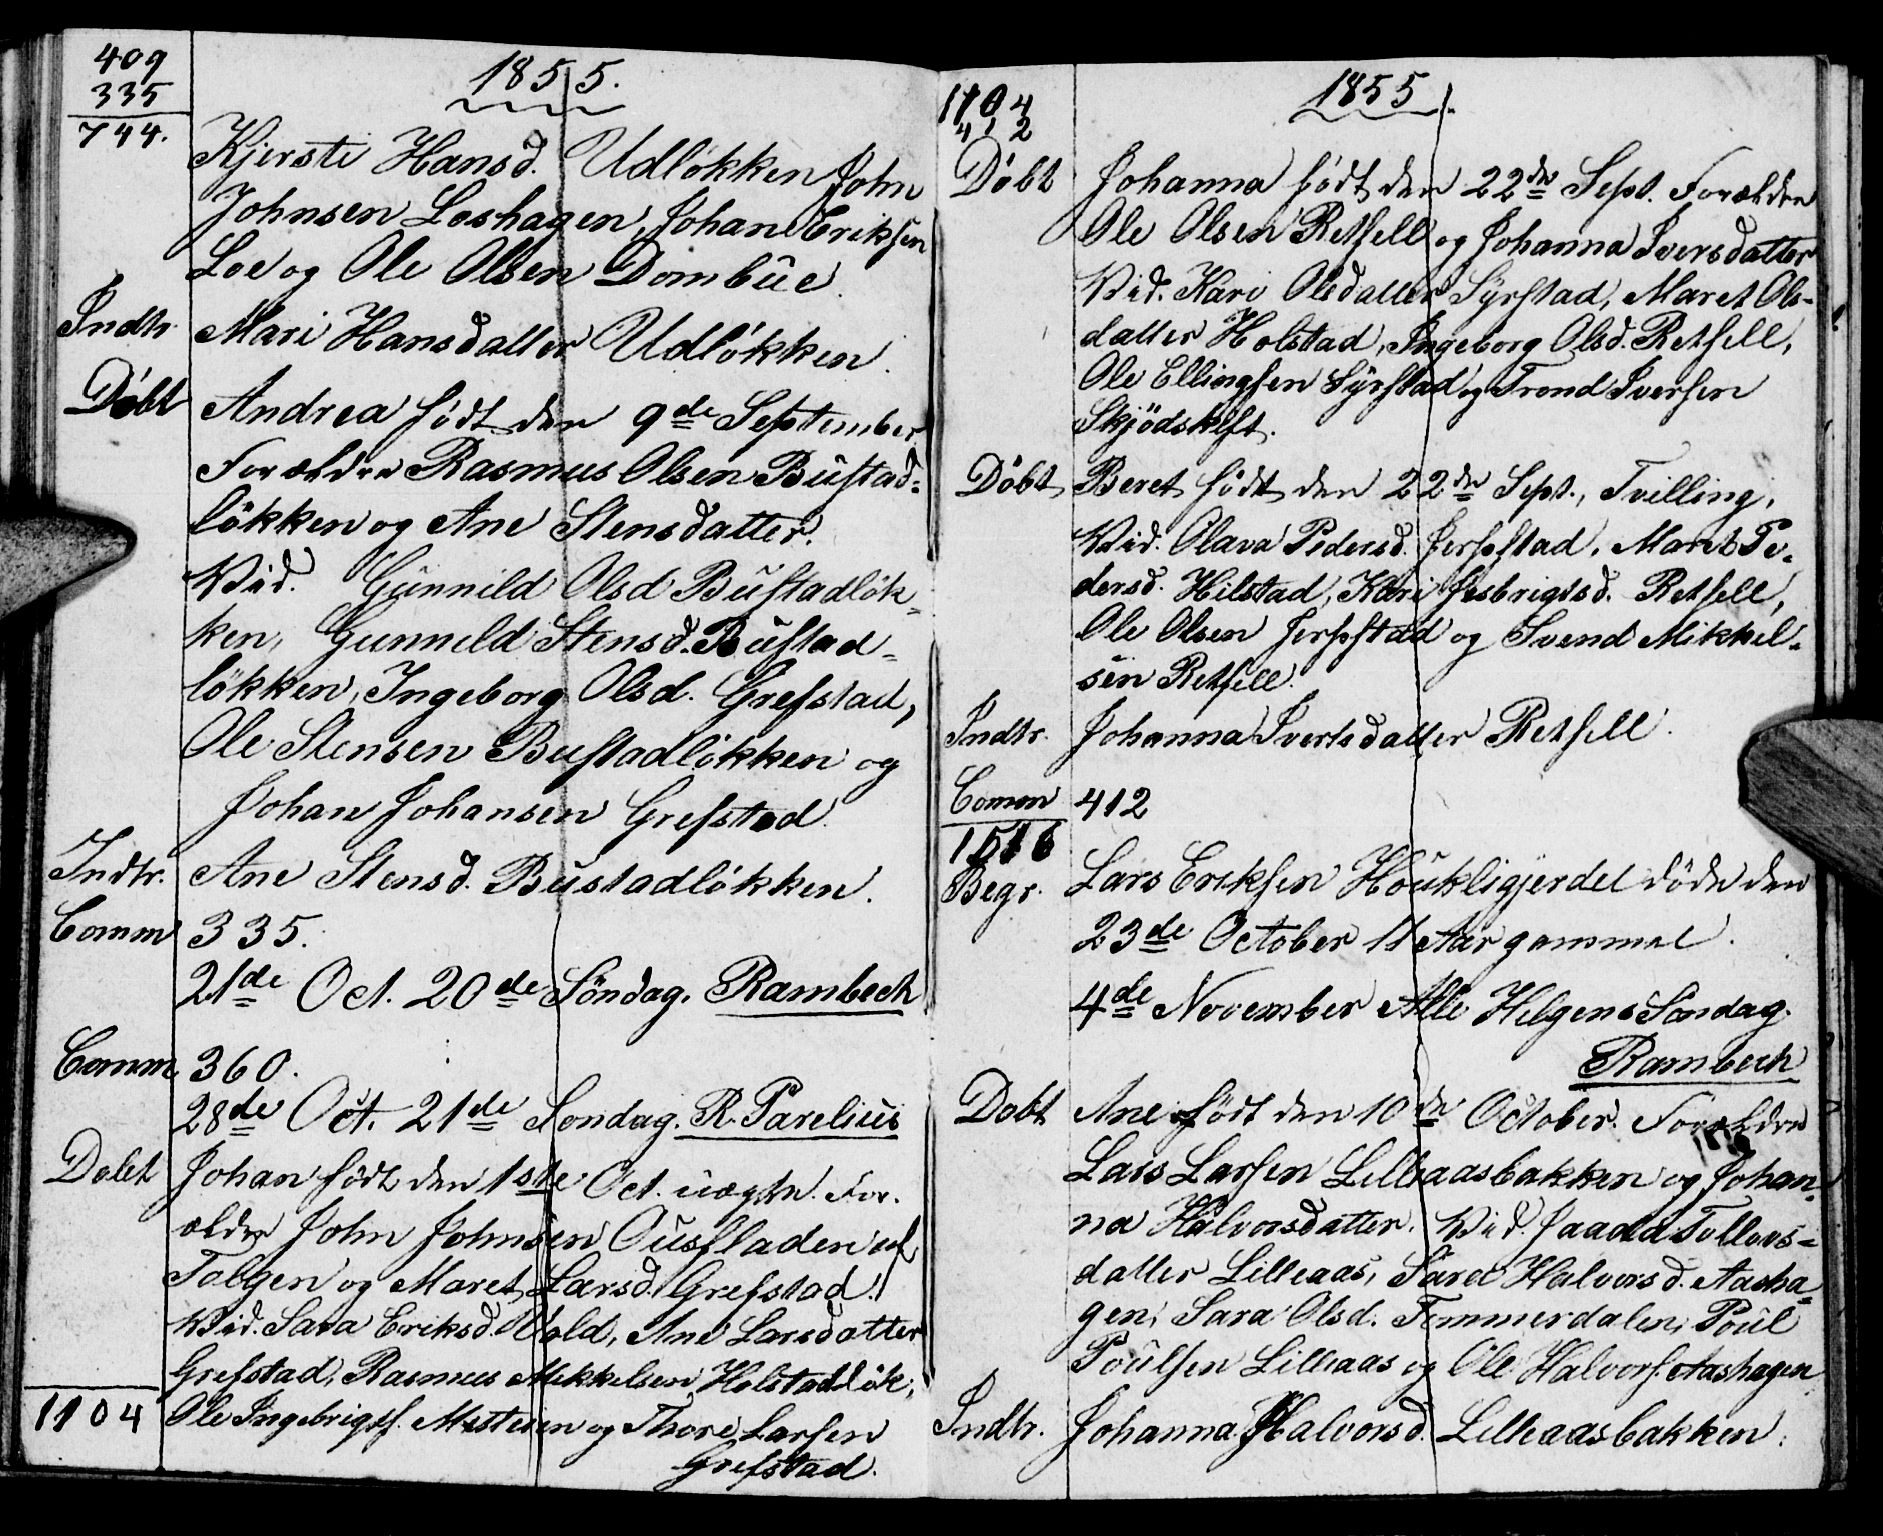 409
335
744.
1855.
Kjersti Hansd. Udløkken John
Johnsen Loshagen, Johan Eriksen
Loe og Ole Olsen Dombue.
Indtr. Mari Hansdatter Udløkken.
Døbt Andrea født den 9de September
Forældre Rasmus Olsen Bustad-
løkken og Ane Stensdatter.
Vid. Gunnild Olsd Bustadløk-
ken, Gunneld Stensd. Bustad-
løkken, Ingeborg Olsd. Grefstad,
Ole Stensen Bustadløkken og
Johan Johansen Grefstad.
Indtr. Ane Stensd. Bustadløkken.
Comm 335.
21de Oct. 20de Søndag. Rambech
Comm 360.
28de Oct. 21de Søndag. R. Parelius
Døbt Johan født den 1ste Oct. uægte. For-
ældre John Johnsen Ousfladen af
Tolgen og Maret Larsd. Grefstad.
Vid. Sara Eriksd. Vold, Ane Larsdatter
Grefstad, Rasmus Mikkelsen Holstadløk,
1104 Ole Ingebrigts. og Thore Larsen
Grefstad.
1855.
1104
412
Døbt Johanna født den 22de Sept. Forældre
Ole Olsen Retfell og Johanna Iversdatter
Vid. Kari Olsdatter Syrstad, Maret Ols-
datter Holstad, Ingeborg Olsd. Retfell,
Ole Ellingsen Syrstad og Trond Iversen
Skjødskift.
Døbt Beret født den 22de Sept., Tvilling,
Vid. Olava Pedersd. Jerpstad, Maret Pe-
dersd. Hilstad, Kari Retfell,
Ole Olsen Jerpstad og Svend Mikkel-
sen Retfell.
Indtr. Johanna Ivertsdatter Retfell.
Comm 412
1516
Begr. Lars Eriksen Houkligjerdet døde den
23de October 11 Aar gammel.
4de November Alle Helgens Søndag.
Rambech
Døbt Ane født den 10de October. Forældre
Lars Larsen Lilleaasbakken og Johan-
na Halvorsdatter. Vid. Tollevs-
datter Lilleaas, Sara Halvorsd. Aasha-
gen, Sara Olsd. Tømmerdalen, Poul
Poulsen Lilleaas og Ole Halvors. Aashagen
Indtr. Johanna Halvorsd. Lilleaasbakken.